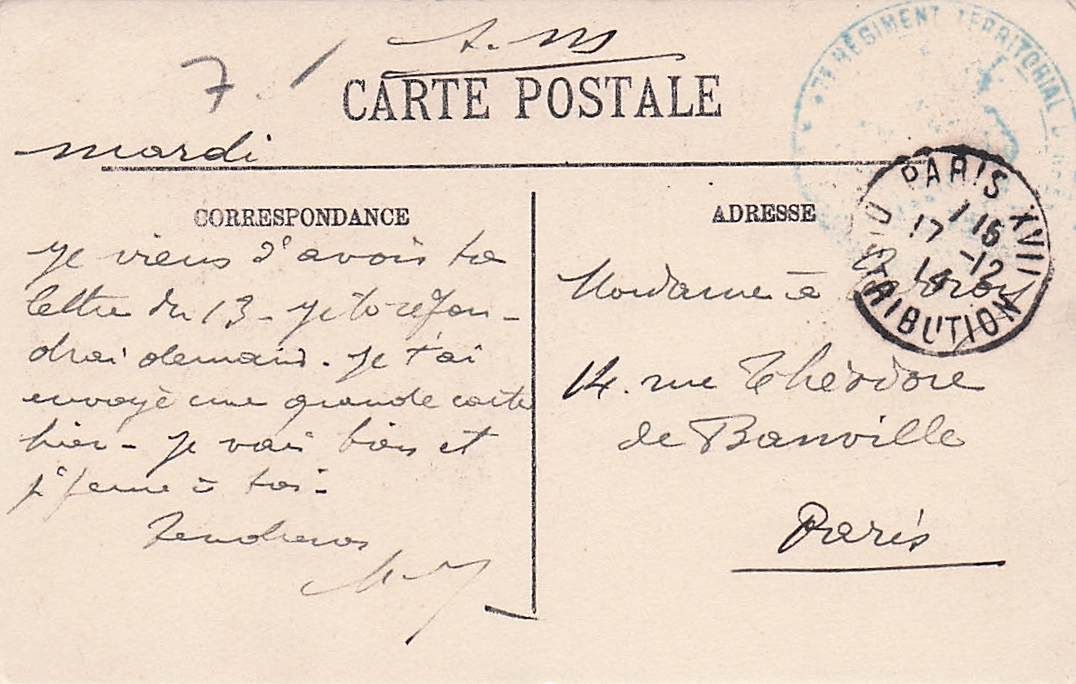 7.
F. M
CARTE POSTALE
RÉGIMENT TERRITORIAL
mardi
CORRESPONDANCE
Je viens d'avoir ta
lettre du 13 - je te répon-
drai demain. Je t'ai
envoyé une grande carte
hier - Je vais bien et
pense à toi -
Tendresses
ADRESSE
PARIS XVII
17 -12
DISTRIBUTION
Madame
14. rue Théodore
de Banville
Paris